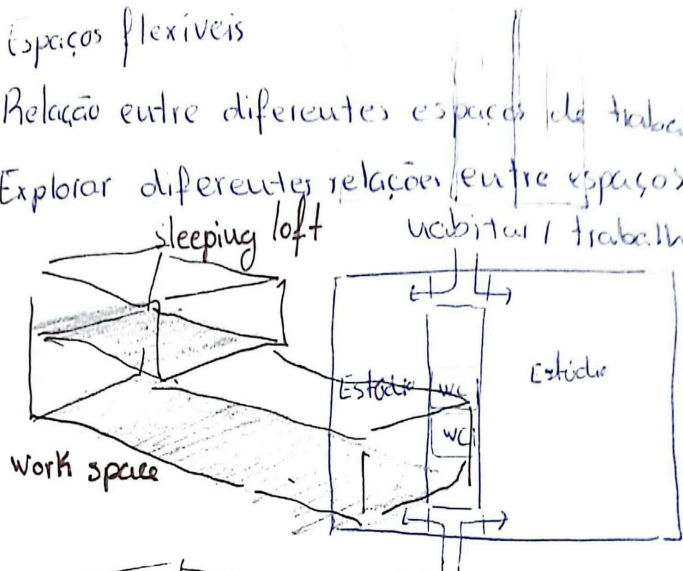 Espaços flexíveis
Relação entre diferentes espaços de
Explorar diferentes relações entre espaços
sleeping loft
habitar /
Estúdio WC Estúdio
WC
work space